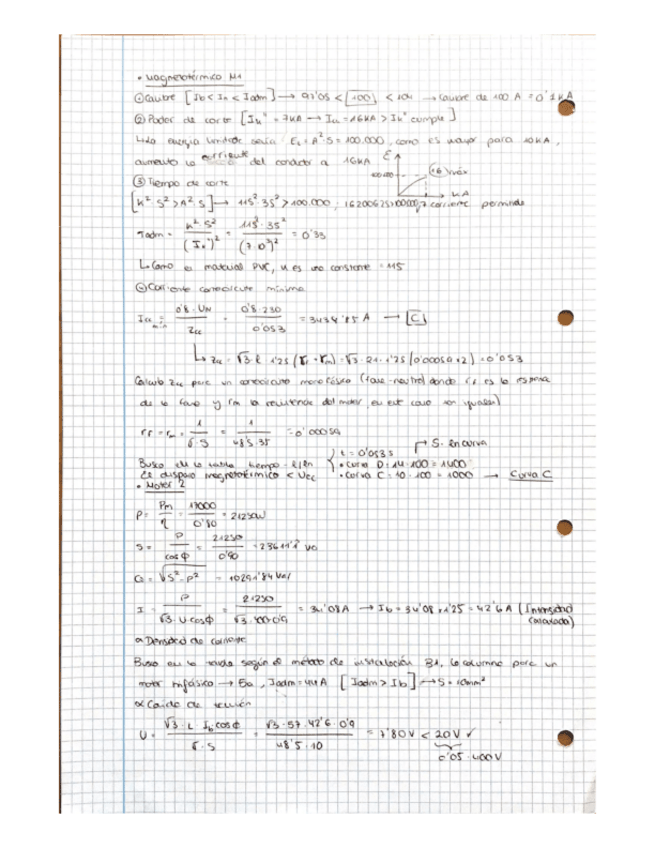 • Magnetotérmico M1
① Calibre [Ib < In < Iadm] → 97'05 < [100] < 104 → Calibre de 100 A = 0'1 kA
② Poder de corte [Ik" = 7kA → Iu = 16kA > Ik" cumple]
↳ La energía límite sería Es = A²·S = 100.000, como es mayor para 10kA,
aumento la corriente del conductor a 16kA
E
100.000
16 máx
kA
③ Tiempo de corte
[K²·S² > A²·S] → 115²·35² > 100.000; 16200625 > 100000, corriente permitida
Tadm = K²·S² / (I")² = 115²·35² / (7·10³)² = 0'33
↳ Como es material PVC, K es una constante = 115
④ Corriente cortocircuito mínima
Icc min = 0'8·UN / Zcc = 0'8·230 / 0'053 = 3434'85 A → [C]
↳ Zcc = √3·L·1'25 (rf + rm) = √3·21·1'25 (0'00059×2) = 0'053
Calculo Zcc para un cortocircuito monofásico (fase-neutro) donde rf es la
de la fase y rm la resistencia del motor, en este caso son iguales)
rf = rm = 1 / σ·S = 1 / 48'5·35 = 0'00059
Busco en la tabla tiempo - I/In
El disparo magnetotérmico < Ucc
t = 0'0535
→ S. en curva
• Curva D = 14·100 = 1400
• Curva C = 10·100 = 1000 → Curva C
• Motor 2
P = Pm / η = 17000 / 0'80 = 21250W
S = P / cosφ = 21250 / 0'90 = 23611'1 VA
Q = √S²-P² = 10291'84 Var
I = P / √3·U·cosφ = 21250 / √3·400·0'9 = 34'08A → Ib = 34'08×1'25 = 42'6 A (Intensidad calculada)
α Densidad de corriente
Busco en la tabla según el método de instalación B1, la columna para un
motor trifásico → 5a, Iadm = 44A [Iadm > Ib] → S = 10mm²
α Caída de tensión
U = √3·L·Ib·cosφ / σ·S = √3·57·42'6·0'9 / 48'5·10 = 7'80V < 20V ✓
0'05·400V